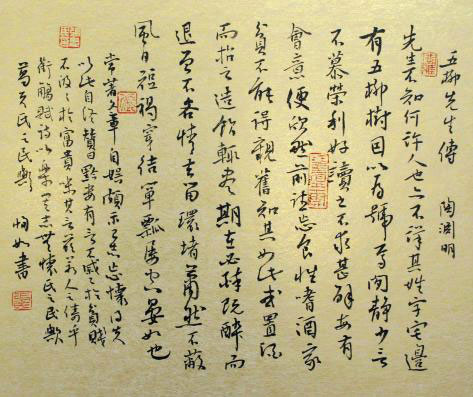 五柳先生傳 陶淵明
先生不知何許人也亦不詳其姓字宅邊
有五柳樹因以為號焉閑靜少言
不慕榮利好讀書不求甚解每有
會意便欣然忘食性嗜酒家
貧不能得親舊知其如此或置酒
而招之造飲輒盡期在必醉既醉而
退曾不吝情去留環堵蕭然不蔽
風日短褐穿結簞瓢屢空晏如也
常著文章自娛頗示己志忘懷得失
以此自終贊曰黔婁有言不戚戚於貧賤
不汲汲於富貴其言茲若人之儔乎
銜觴賦詩以樂其志無懷氏之民歟
葛天氏之民歟 如書